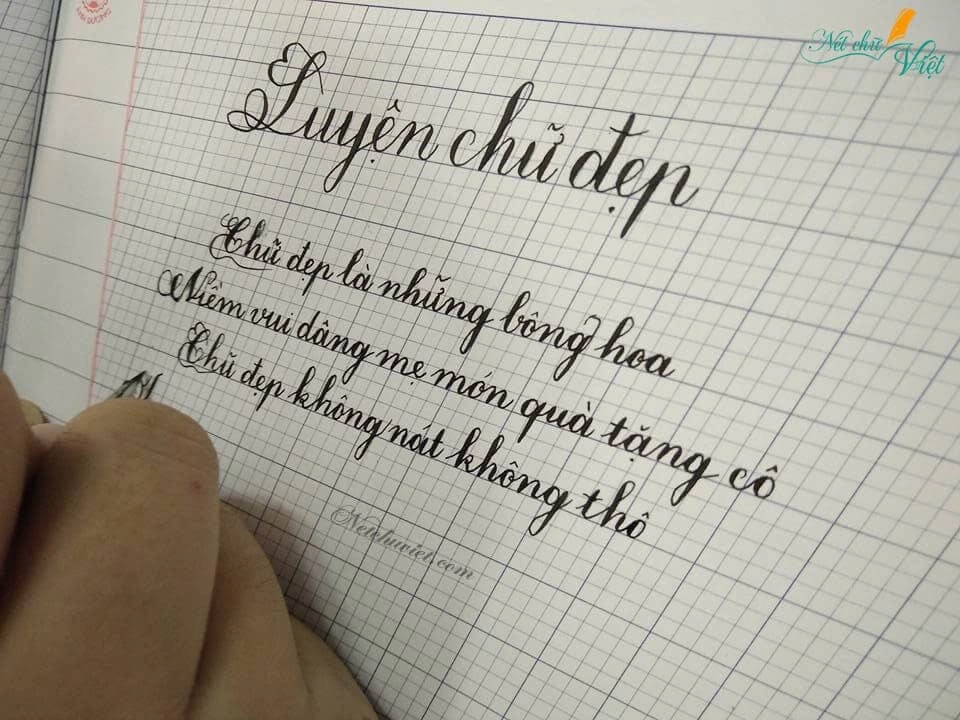 Nét chữ
Việt
Luyện chữ đẹp
Chữ đẹp là những bông hoa
Niềm vui dâng mẹ món quà tặng cô
Chữ đẹp không nát không thô
Netchuviet.com